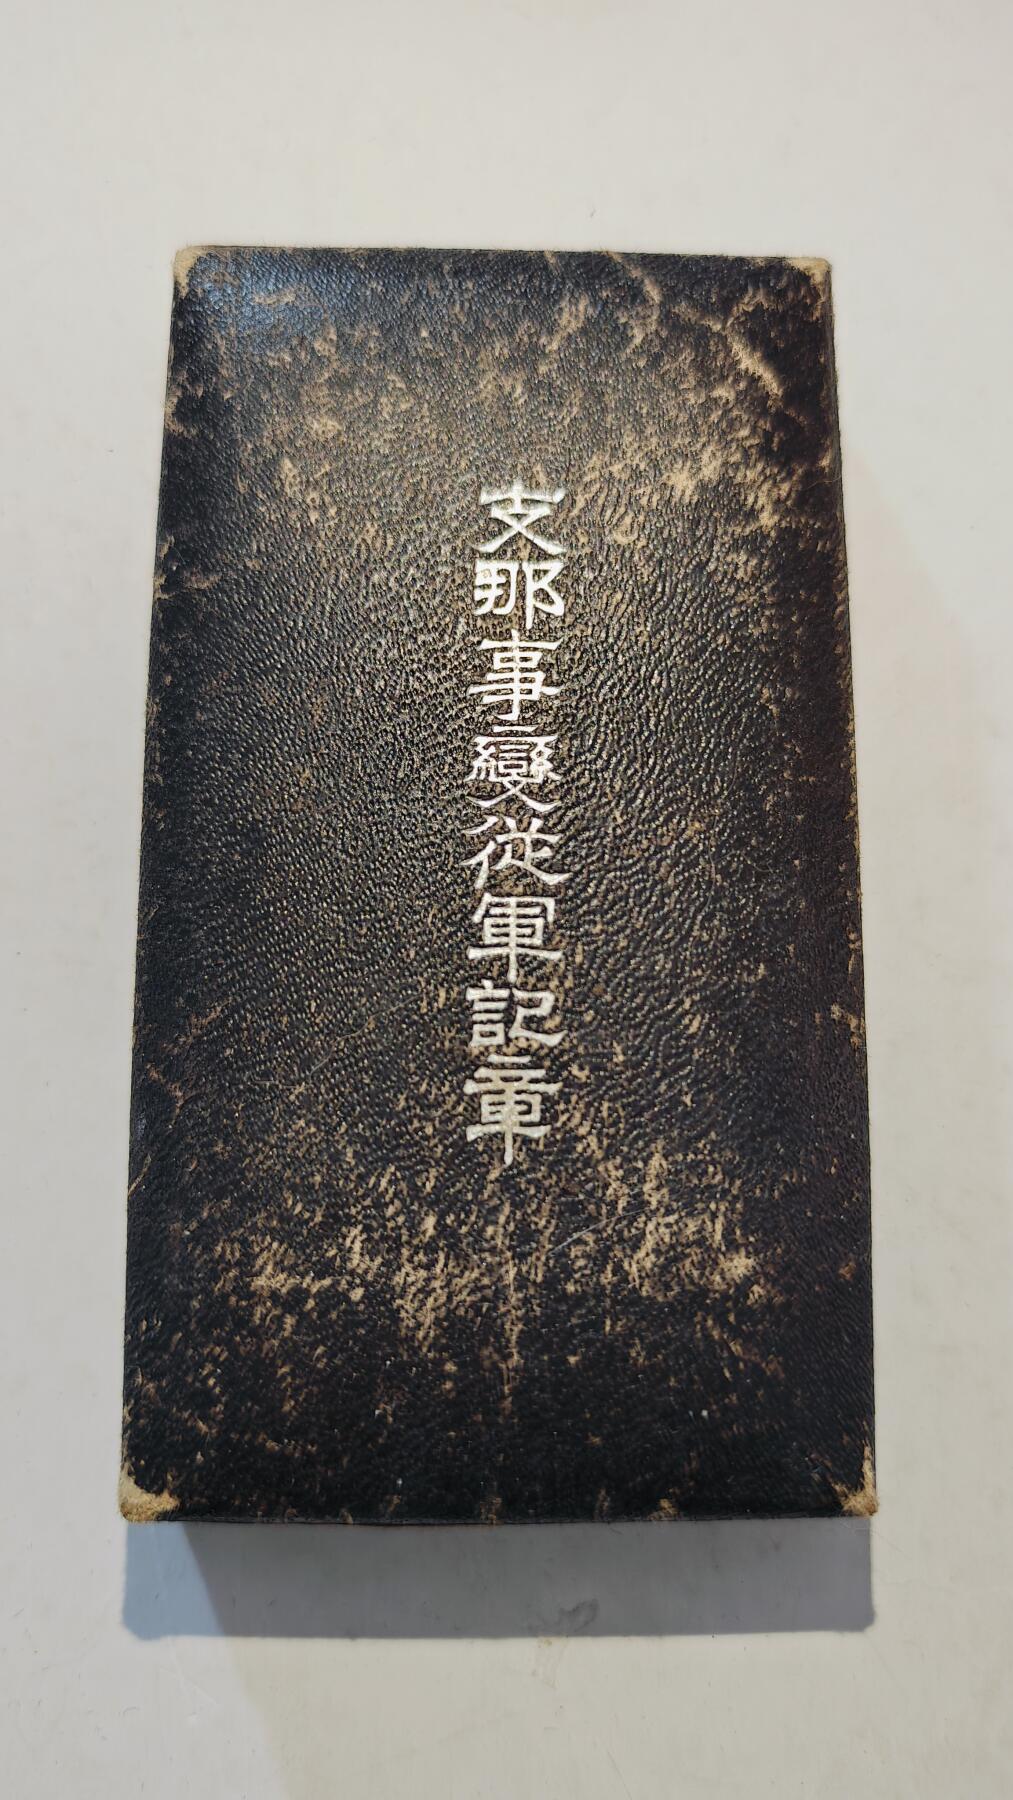 支那事變從軍記章